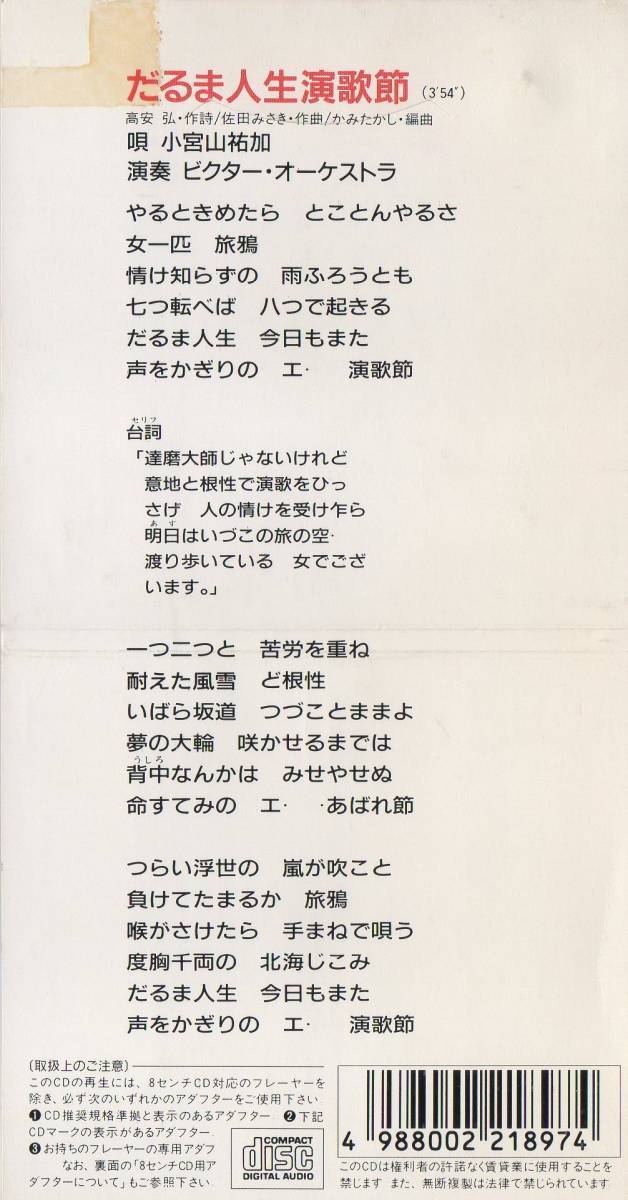 だるま人生演歌節 (3'54")
高安 弘・作詩/佐田みさき・作曲/かみたかし・編曲
唄 小宮山祐加
演奏 ビクター・オーケストラ
やるときめたら　とことんやるさ
女一匹　旅鴉
情け知らずの　雨ふろうとも
七つ転べば　八つで起きる
だるま人生　今日もまた
声をかぎりの　エ・　演歌節
セリフ
台詞
「達磨大師じゃないけれど
意地と根性で演歌をひっ
さげ　人の情けを受け乍ら
あす
明日はいづこの旅の空・
渡り歩いている　女でござ
います。」
一つ二つと　苦労を重ね
耐えた風雪　ど根性
いばら坂道　つづことままよ
夢の大輪　咲かせるまでは
うしろ
背中なんかは　みせやせぬ
命すてみの　エ・　・あばれ節
つらい浮世の　嵐が吹こと
負けてたまるか　旅鴉
喉がさけたら　手まねで唄う
度胸千両の　北海じこみ
だるま人生　今日もまた
声をかぎりの　エ・　演歌節
〔取扱上のご注意〕
このCDの再生には、8センチCD対応のプレーヤーを
除き、必ず次のいずれかのアダプターをご使用下さい.
❶CD推奨規格準拠と表示のあるアダプター ❷下記
CDマークの表示があるアダプター.
❸お持ちのプレーヤーの専用アダプ
なお、裏面の「8センチCD用ア
ダプターについて」もご参照下さい.
COMPACT
disc
DIGITAL AUDIO
4 988002 218974
このCDは権利者の許諾なく賃貸業に使用することを
禁じます また、無断複製は法律で禁じられています